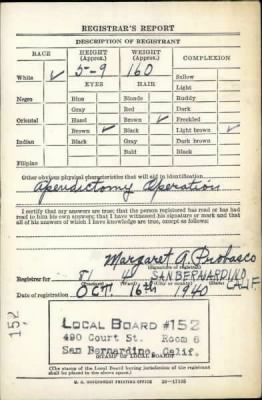 REGISTRAR'S REPORT
DESCRIPTION OF REGISTRANT
RACE HEIGHT (Approx.) WEIGHT (Approx.) COMPLEXION
5-9 160
White ✓ EYES HAIR Sallow
Light
Negro Blue Blonde Ruddy
Gray Red Dark
Oriental Hazel Brown ✓ Freckled
Brown ✓ Black Light brown ✓
Indian Black Gray Dark brown
Bald Black
Filipino
Other obvious physical characteristics that will aid in identification
Apendictomy Operation
I certify that my answers are true; that the person registered has read or has had
read to him his own answers; that I have witnessed his signature or mark and that
all of his answers of which I have knowledge are true, except as follows:
Margaret A.
(Signature of registrar)
Registrar for 81 4 SAN BERNARDINO, CALIF.
(Precinct) (Ward) (City or county) (State)
Date of registration OCT. 16th 1940
152
LOCAL BOARD #152
490 Court St. Room 6
San Bernardino, Calif.
(STAMP OF LOCAL BOARD)
(The stamp of the Local Board having jurisdiction of the registrant
shall be placed in the above space.)
U. S. GOVERNMENT PRINTING OFFICE 16—17105